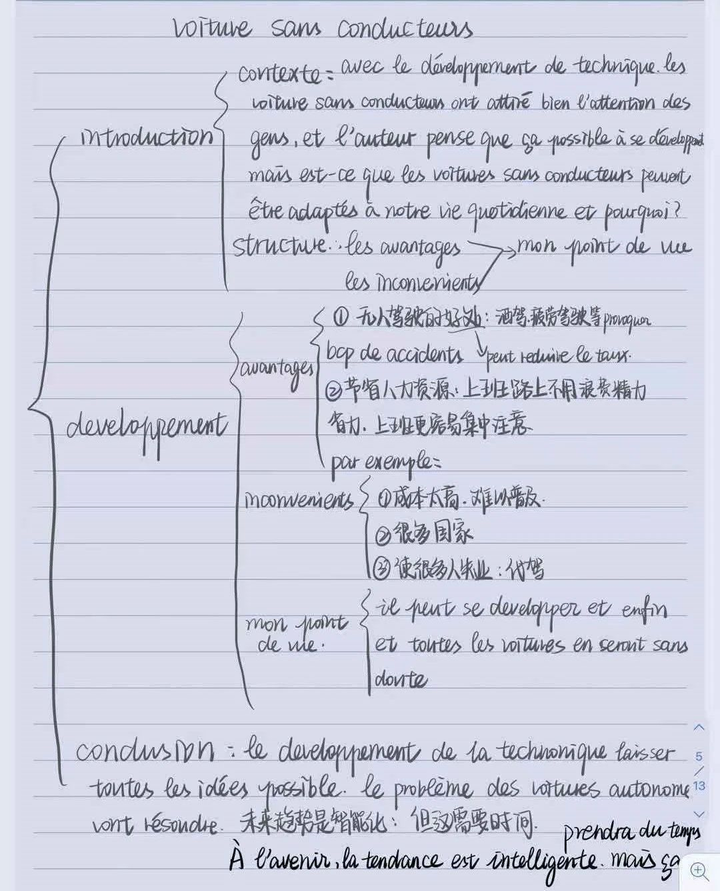 voiture sans conducteurs
contexte : avec le développement de technique. les
voiture sans conducteurs ont attiré bien l'attention des
introduction
gens, et l'auteur pense que ça possible à se développent
mais est-ce que les voitures sans conducteurs peuvent
être adaptés à notre vie quotidienne et pourquoi?
structure : les avantages → mon point de vue
les inconvenients
① 无人驾驶的好处: 酒驾疲劳驾驶等 provoquer
bcp de accidents ↘ peut reduire le taux.
avantages
②节省人力资源: 上班路上不用浪费精力
省力, 上班更容易集中注意
developpement
par exemple:
inconvenients
①成本太高. 难以普及.
②很多国家
③使很多人失业: 代驾
mon point de vue.
il peut se developper et enfin
et toutes les voitures en seront sans
doute
conclusion : le developpement de la technonique laisser
toutes les idées possible. le problème des voitures autonome
vont résoudre. 未来趋势是智能化: 但这需要时间.
prendra du temps
À l'avenir, la tendance est intelligente. mais ça
5
/
13